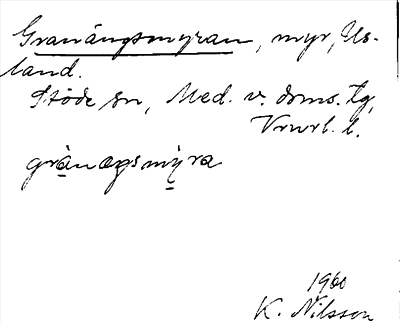 Granängsmyran, myr, Us-
land.
Stöde sn, Med. v. dms. tg,
Vrwrl. l.
grànæŋsmỳra
1960
K. Nilsson